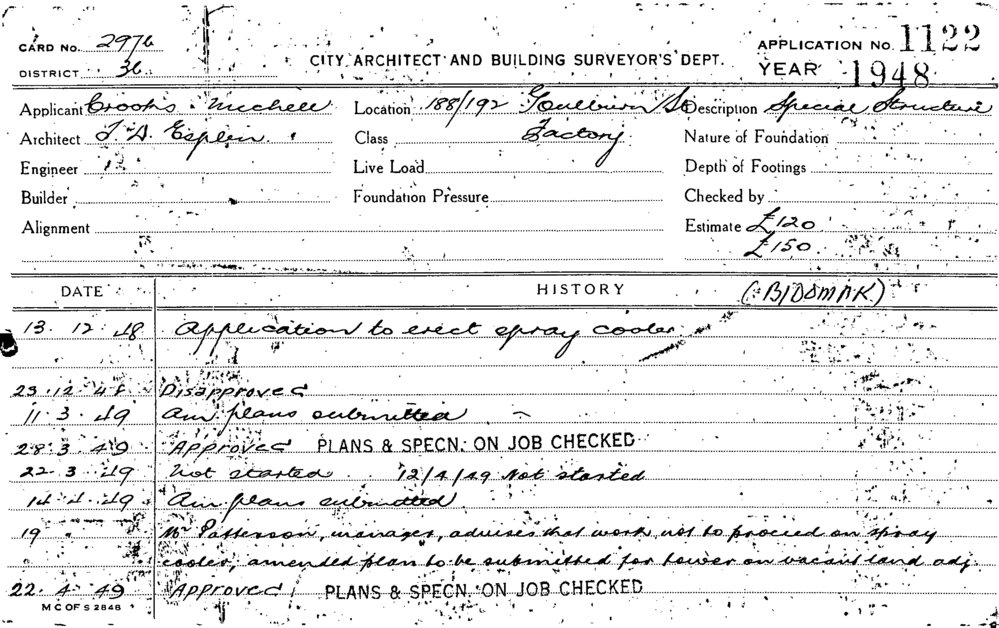 CARD No. 2976
DISTRICT 36
CITY ARCHITECT AND BUILDING SURVEYOR'S DEPT.
APPLICATION No. 1122
YEAR 1948
Applicant Crooks Michell Location 188/192 Goulburn St Description Special Structure
Architect T. D. Esplin Class Factory Nature of Foundation
Engineer Live Load Depth of Footings
Builder Foundation Pressure Checked by
Alignment Estimate £120
£150
DATE HISTORY
13. 12. 48 Application to erect spray cooler
23. 12. 48 Disapproved
11. 3. 49 Am. plans submitted
28. 3. 49 Approved PLANS & SPECN. ON JOB CHECKED
22. 3. 49 Not started 12/4/49 Not started
14. 4. 49 Am. plans submitted
19 Mr Patterson, manager, advises that work not to proceed on spray
cooler, amended plan to be submitted for tower on vacant land adj.
22. 4. 49 Approved PLANS & SPECN. ON JOB CHECKED
M C OF S 2848